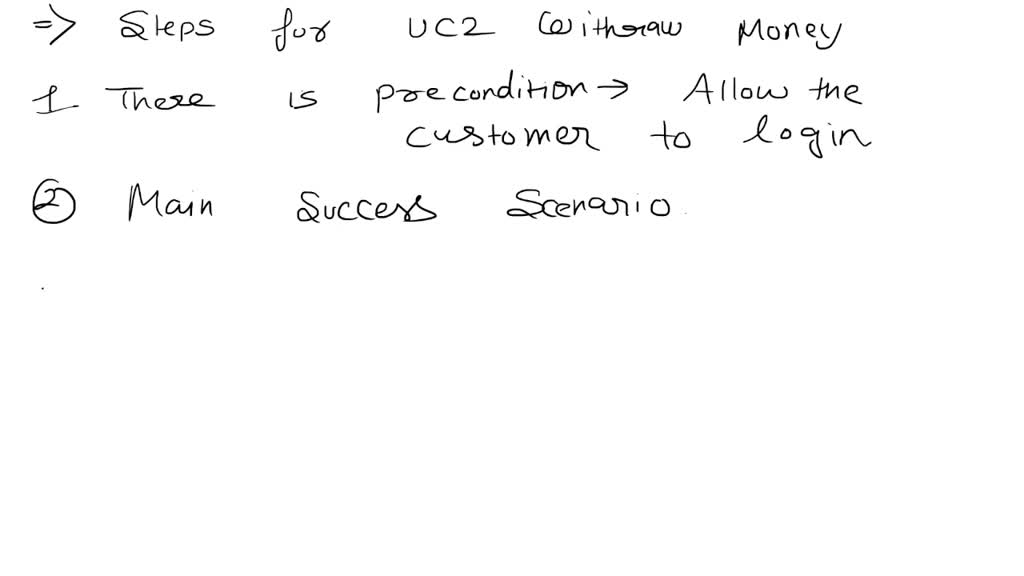 ⇒ Steps for UC2 Withraw Money
1 There is precondition → Allow the
customer to login
② Main Success Scenario